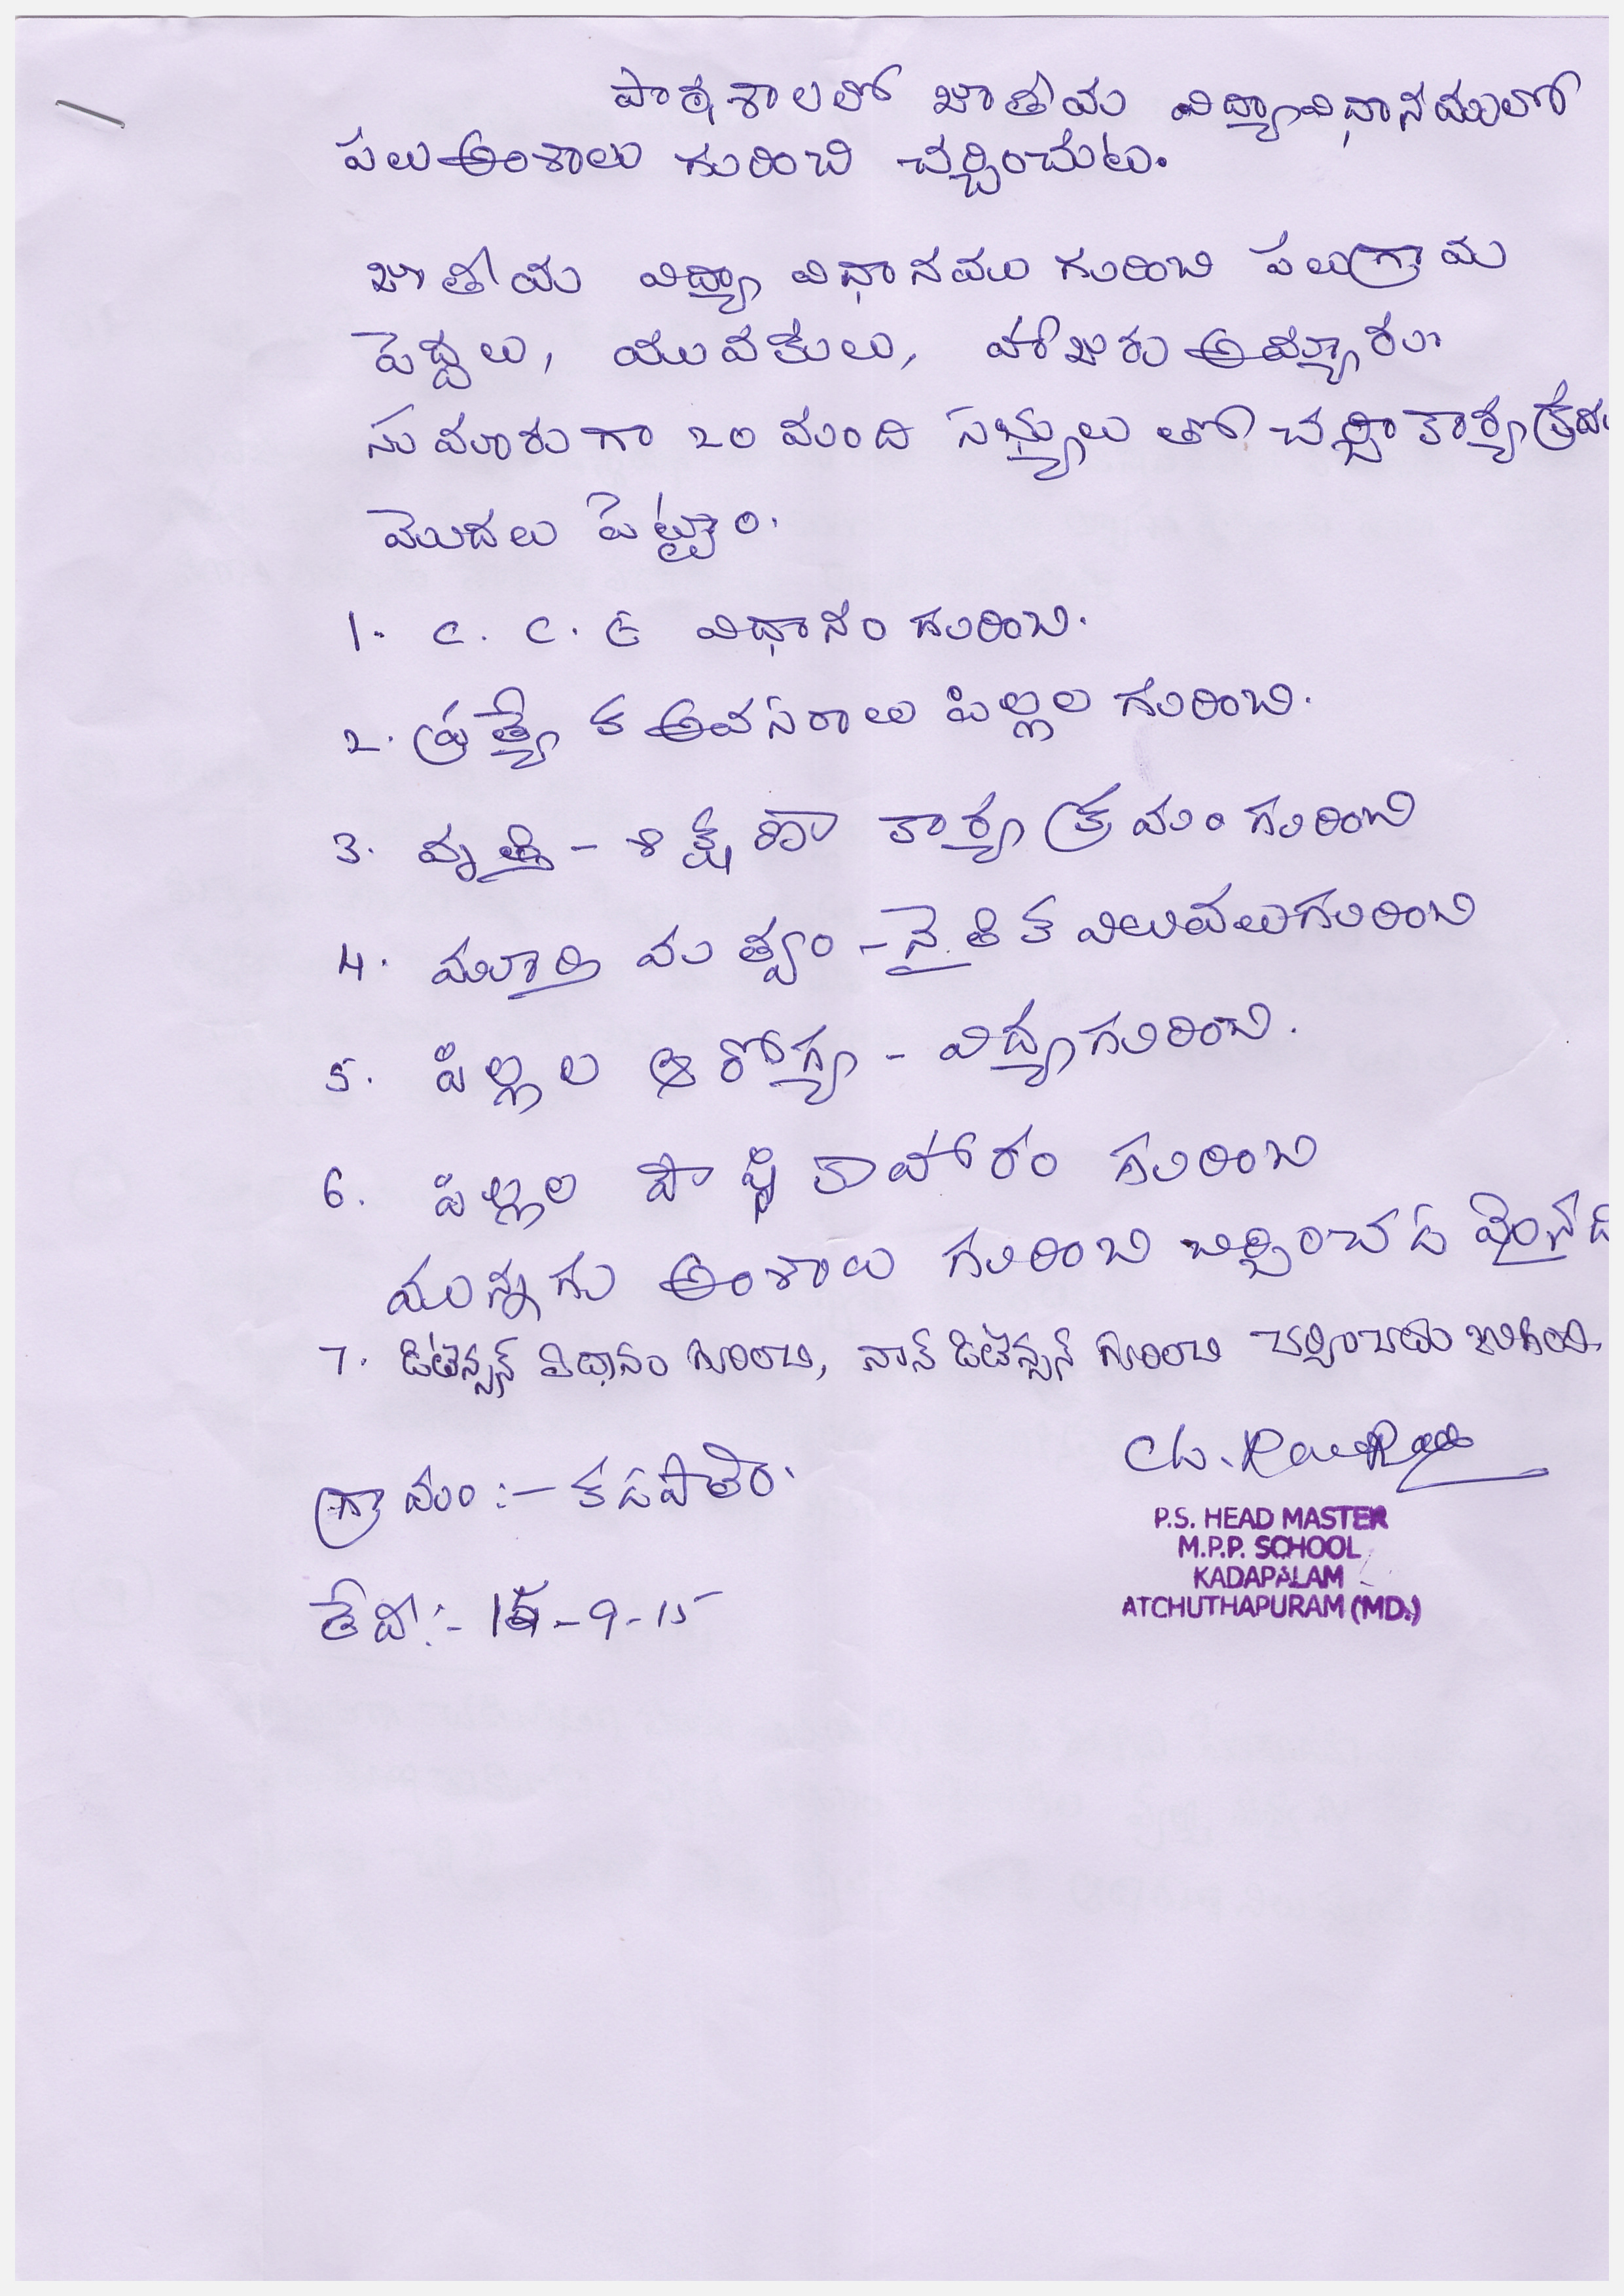 పాఠశాలలో జాతీయ విద్యావిధానములో
పలు అంశాలు గురించి చర్చించుట.
జాతీయ విద్యా విధానము గురించి పలు గ్రామ
పెద్దలు, యువకులు, హాజరు అయ్యారు
సుమారుగా 20 మంది సభ్యులు తో చర్చా కార్యక్రమం
మొదలు పెట్టాం.
1. C. C. E విధానం గురించి.
2. ప్రత్యేక అవసరాలు పిల్లల గురించి.
3. వృత్తి - శిక్షణా కార్యక్రమం గురించి
4. మూర్తిమత్వం - నైతిక విలువలు గురించి
5. పిల్లల ఆరోగ్య - విద్య గురించి.
6. పిల్లల పౌష్టికాహారం గురించి
మున్నగు అంశాలు గురించి చర్చించడమైనది
7. డిటెన్సన్ విధానం గురించి, నాన్ డిటెన్సన్ గురించి చర్చించడం జరిగింది.
గ్రామం :- కడపాలెం.
తేదీ :- 15-9-15
P.S. HEAD MASTER
M.P.P. SCHOOL
KADAPALAM
ATCHUTHAPURAM (MD.)